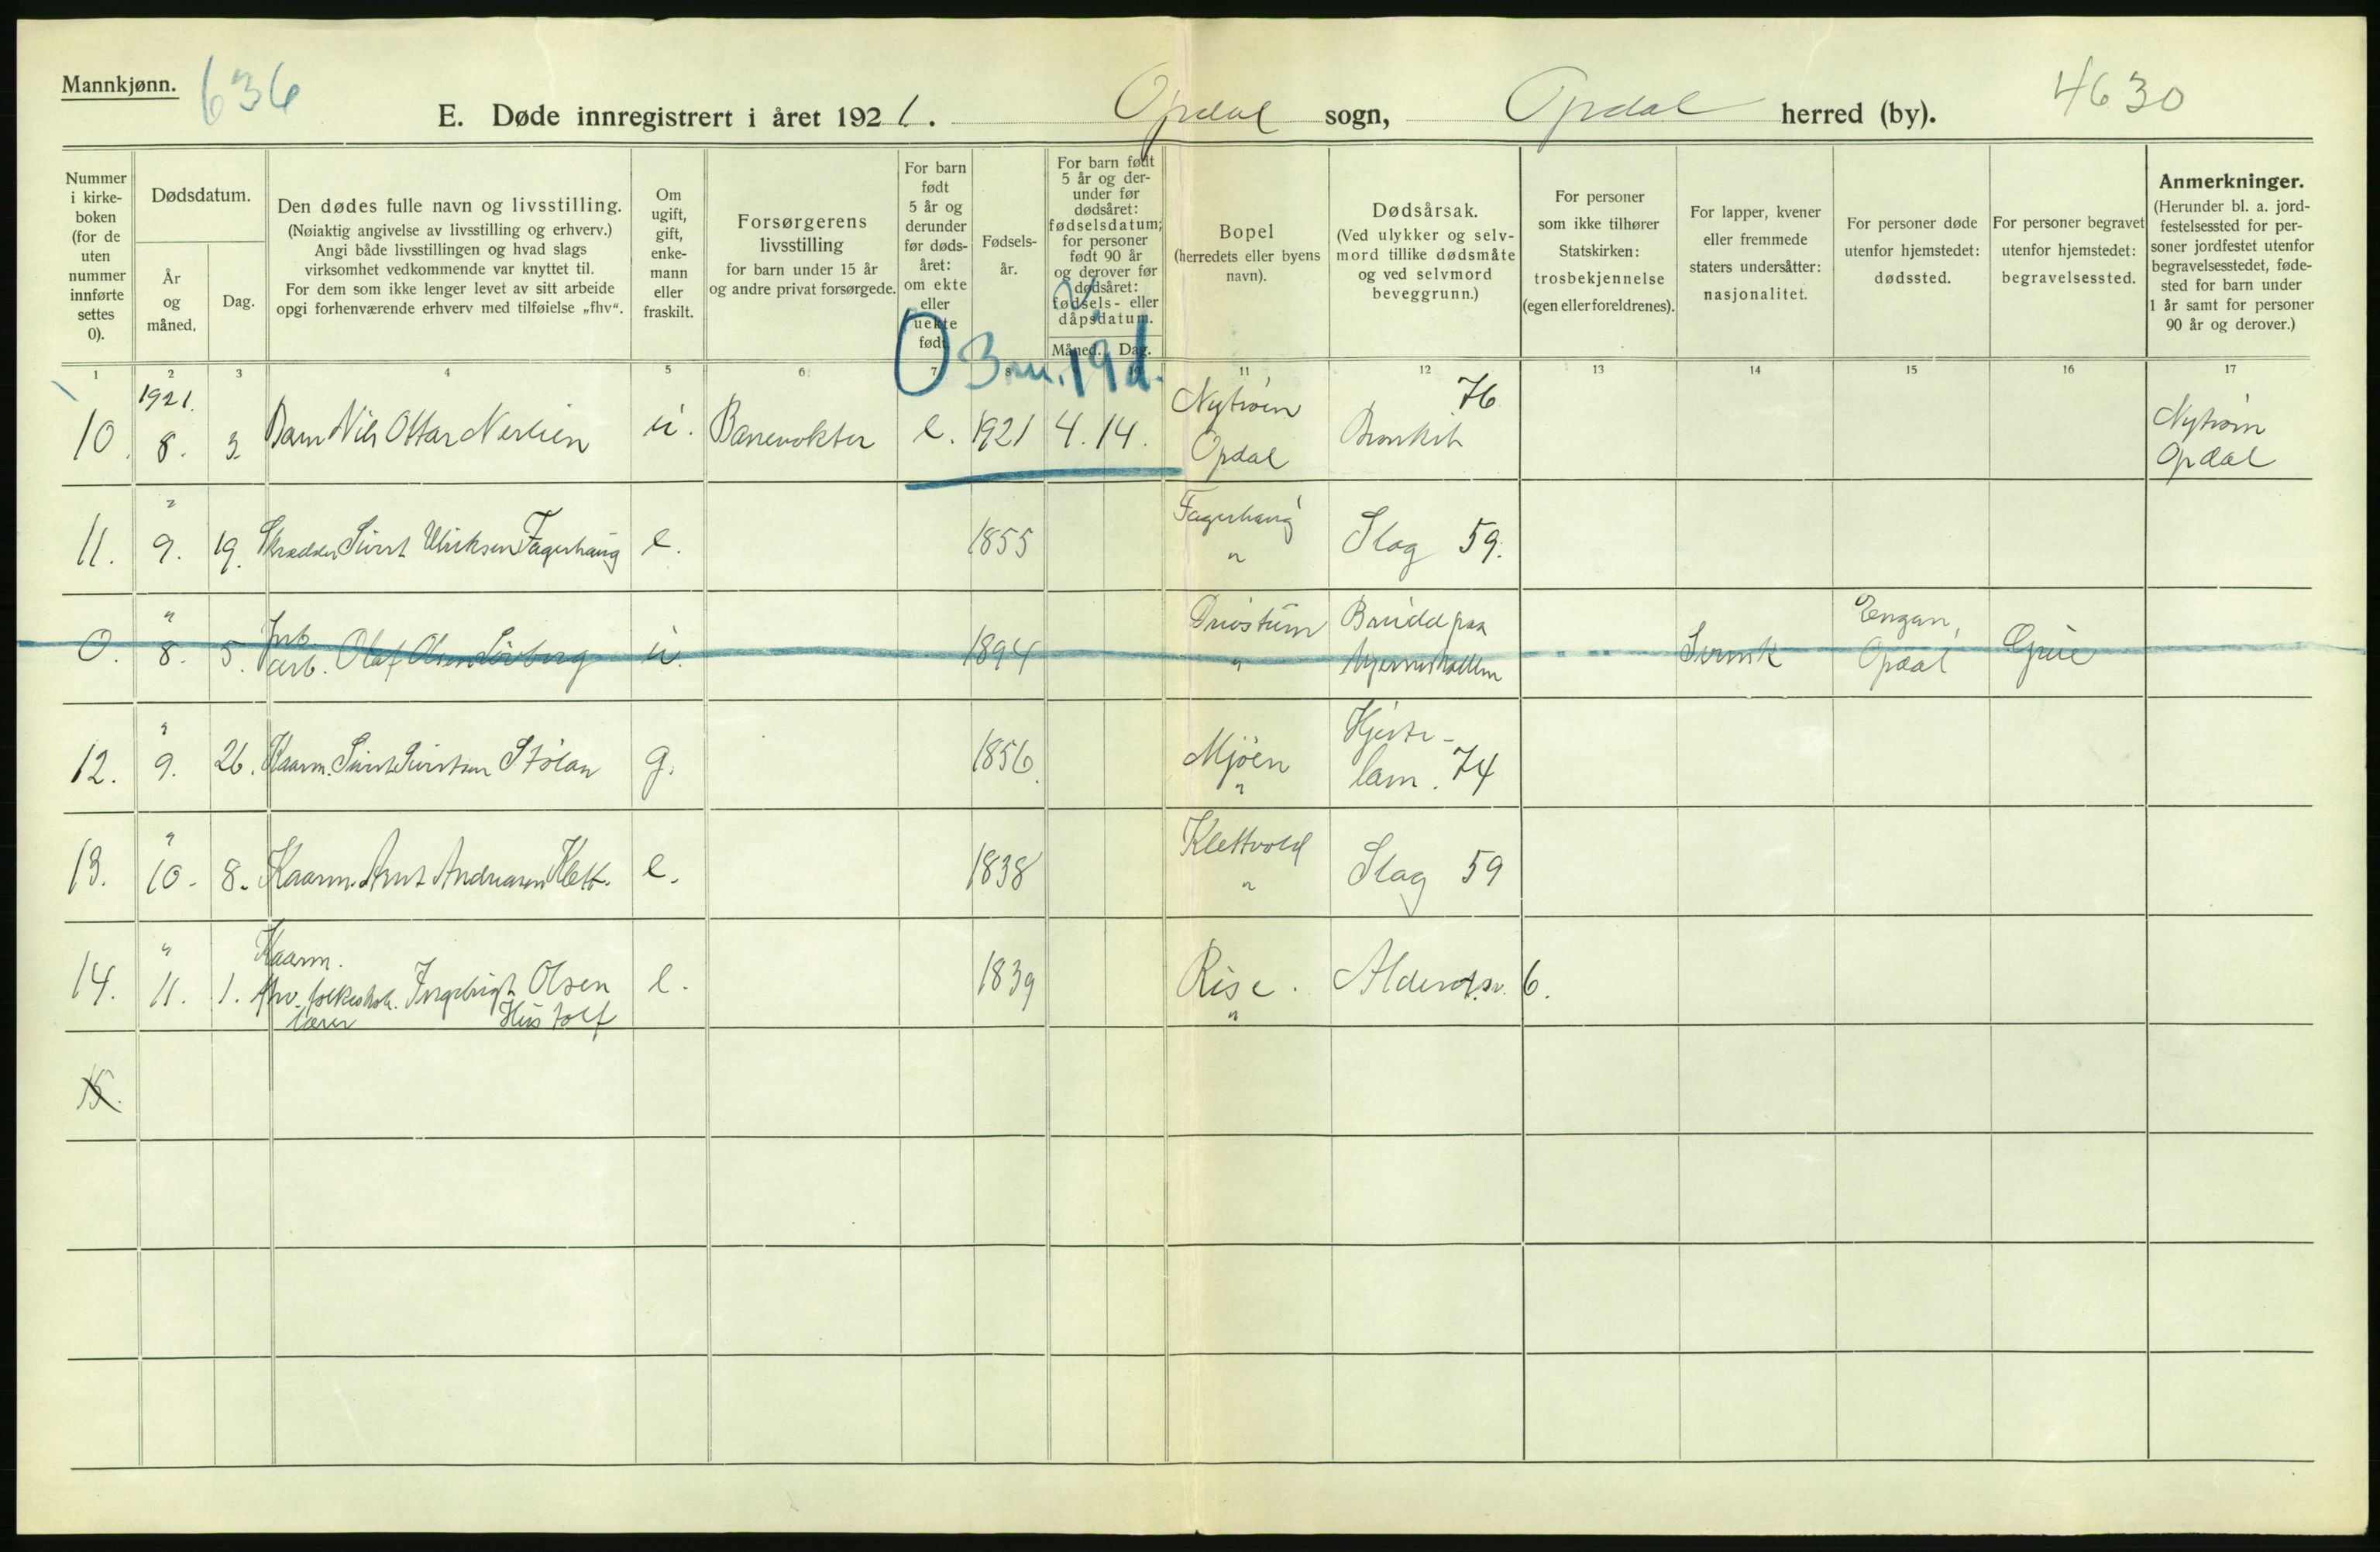 Mannkjønn.
636
E. Døde innregistrert i året 1921. Opdal sogn, Opdal herred (by).
4630
Nummer i kirke-boken (for de uten nummer innførte settes 0).
Dødsdatum.
År og måned.
Dag.
Den dødes fulle navn og livsstilling.
(Nøiaktig angivelse av livsstilling og erhverv.)
Angi både livsstillingen og hvad slags
virksomhet vedkommende var knyttet til.
For dem som ikke lenger levet av sitt arbeide
opgi forhenværende erhverv med tilføielse „fhv“.
Om ugift, gift, enke-mann eller fraskilt.
Forsørgerens
livsstilling
for barn under 15 år
og andre privat forsørgede.
For barn født 5 år og derunder før døds-året: om ekte eller uekte født.
Fødsels-år.
For barn født 5 år og der-under før dødsåret: fødselsdatum; for personer født 90 år og derover før dødsåret: fødsels- eller dåpsdatum.
Måned. Dag.
Bopel
(herredets eller byens navn).
Dødsårsak.
(Ved ulykker og selv-
mord tillike dødsmåte
og ved selvmord
beveggrunn.)
For personer
som ikke tilhører
Statskirken:
trosbekjennelse
(egen eller foreldrenes).
For lapper, kvener
eller fremmede
staters undersåtter:
nasjonalitet.
For personer døde
utenfor hjemstedet:
dødssted.
For personer begravet
utenfor hjemstedet:
begravelsessted.
Anmerkninger.
(Herunder bl. a. jord-
festelsessted for per-
soner jordfestet utenfor
begravelsesstedet, føde-
sted for barn under
1 år samt for personer
90 år og derover.)
1 2 3 4 5 6 7 8 9 10 11 12 13 14 15 16 17
0 3 m. 19 d.
1921.
10. 8. 3. Barn Nils Ottar Nerlien u. Banevokter e. 1921 4. 14. Nytrøen Opdal Bronkit 76 Nytrøen Opdal
11. " 9. 19. Skrædder Sivert Ulriksen Fagerhaug e. 1855 Fagerhaug " Slag 59.
0. " 8. 5. Jnb. arb. Olaf Olsen u. 1894 Drivstuen " paa Svensk Engan, Opdal Grue
12. " 9. 26. Kaarm. Sivert Sivertsen Stølan g. 1856. Mjøen " Hjerte-lam. 74
13. " 10. 8. Kaarm. Arnt Andreasen Klett. e. 1838 Klettvold " Slag 59
14. " 11. 1. Kaarm. fhv. folkeskole. lærer Ingebrigt Olsen e. 1839 Rise. " Alderds. 6.
15.